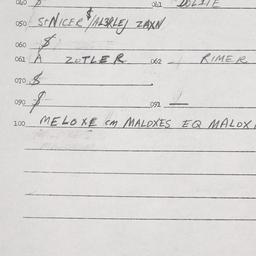 040 061 DOLITE
050 SENICER $/ALSRLEJ ZAXN
060 $
061 A ZOTLER 062 RIMER
070 $
090 $ 091
100 MELOXE CM MALOXES EQ MALOX